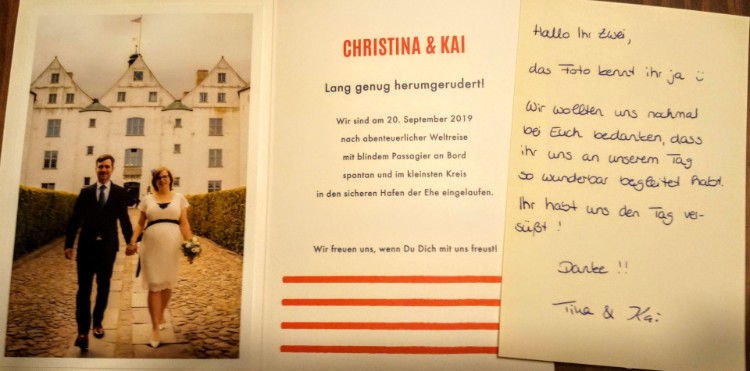 CHRISTINA & KAI
Lang genug herumgerudert!
Wir sind am 20. September 2019
nach abenteuerlicher Weltreise
mit blindem Passagier an Bord
spontan und im kleinsten Kreis
in den sicheren Hafen der Ehe eingelaufen.
Wir freuen uns, wenn Du Dich mit uns freust!
Hallo Ihr zwei,
das Foto kennt ihr ja ü
Wir wollten uns nochmal
bei Euch bedanken, dass
ihr uns an unserem Tag
so wunderbar begleitet habt.
Ihr habt uns den Tag ver-
süßt!
Danke !!
Tina & Kai